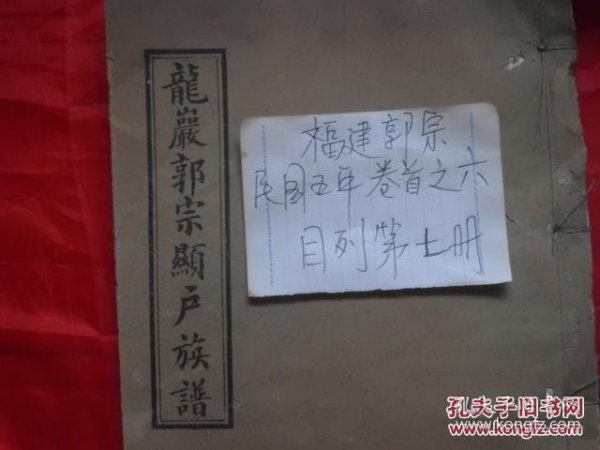 龍巖郭宗顯户族譜
福建郭宗
民国五年 卷首之六
目列第七册
孔夫子旧书网
www.kongfz.com